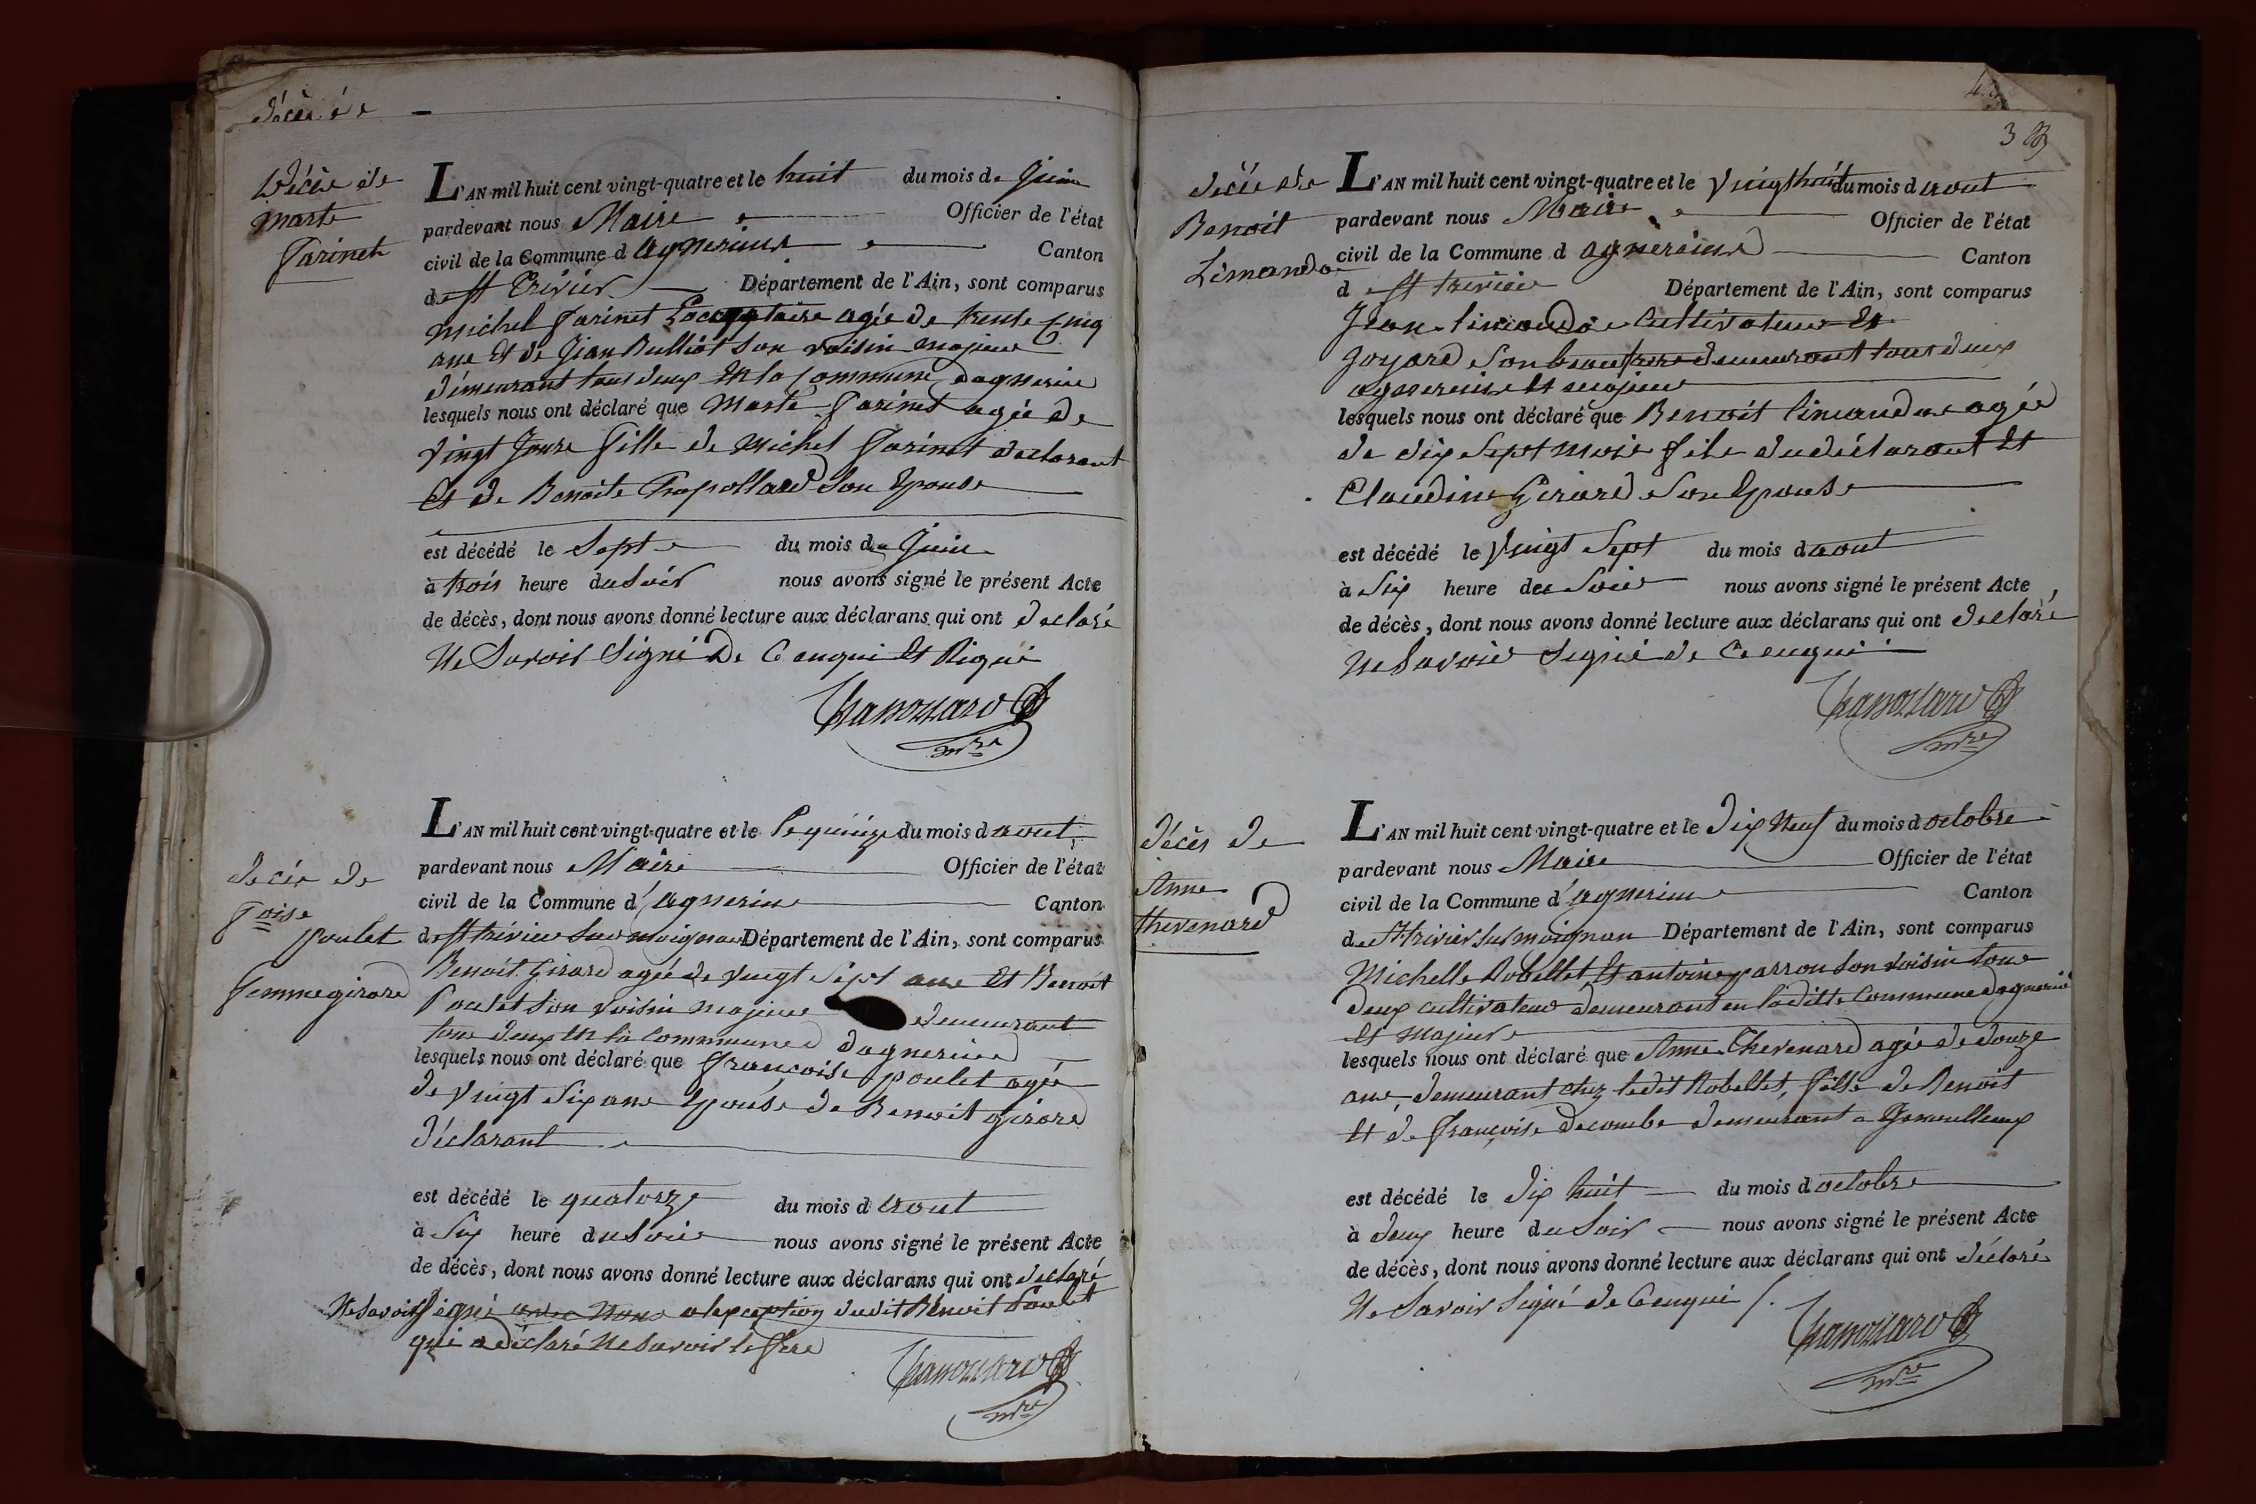 décès de
Décès de
marte
Farinet
L'AN mil huit cent vingt-quatre et le huit du mois de Juin
pardevant nous Maire Officier de l'état
civil de la Commune d agnerieux Canton
de St Trivier Département de l'Ain, sont comparus
michel Farinet Locataire agée de trente Cinq
ans Et de Jean Bulliot Son voisin majeur
démeurant tous deux En la Commune dagnerieu
lesquels nous ont déclaré que Marte Farinet agée de
vingt Jours fille de Michel Farinet declarant
Et de Benoite Trapollard Son Epouse
est décédé le Sept du mois de Juin
à trois heure du Soir nous avons signé le présent Acte
de décès, dont nous avons donné lecture aux déclarans qui ont declaré
Ne Savoir Signé De Ce enqui Et Riqui
Chanossard
mre
décès de
foise
poulet
femme girard
L'AN mil huit cent vingt-quatre et le Le quinze du mois d aout
pardevant nous Maire Officier de l'état
civil de la Commune d'agnerieu Canton
de St trivier Sur moignan Département de l'Ain, sont comparus
Benoit Girard agée de vingt Sept ans Et Benoit
Poulet Son voisin majeur demeurant
tous deux En la Commune dagnerieu
lesquels nous ont déclaré que francoise poulet agée
de vingt Six ans Epouse de Benoit girard
déclarant
est décédé le quatorze du mois d aout
à Six heure du Soir nous avons signé le présent Acte
de décès, dont nous avons donné lecture aux déclarans qui ont declaré
Ne Savoir Signé avec Nous a lexception dudit Benoit Poulet
qui a déclaré Ne Savoir le fere
Chanossard
mre
3
décès de
Benoit
Limandas
L'AN mil huit cent vingt-quatre et le vingt huit du mois d aout
pardevant nous Maire Officier de l'état
civil de la Commune d agnereieux Canton
d e St trivier Département de l'Ain, sont comparus
Jean limandas Cultivateur Et
Joyard Son beau frere demeurant tous deux
agnereieux Et majeur
lesquels nous ont déclaré que Benoit limandas agée
de dix Sept mois fils du déclarant Et
Claudine Girard Son Epouse
est décédé le vingt Sept du mois d aout
à Six heure du Soir nous avons signé le présent Acte
de décès, dont nous avons donné lecture aux déclarans qui ont declaré
Ne Savoir Signé de Ce enqui
Chanossard
mre
décès de
Anne
thevenard
L'AN mil huit cent vingt-quatre et le dix Neuf du mois d octobre
pardevant nous Maire Officier de l'état
civil de la Commune d'agnerieu Canton
de St trivier Sur moignan Département de l'Ain, sont comparus
Michelle Robellet, Et antoine parrou Son voisin tous
deux cultivateur demeurant en laditte Commune dagnerieu
Et majeur
lesquels nous ont déclaré que Anne Thevenard agée de douze
ans, demeurant chez ledit Robellet, fille de Benoit
Et de françoise decombe demeurant a Jamoulleux
est décédé le dix huit du mois d octobre
à deux heure du Soir nous avons signé le présent Acte
de décès, dont nous avons donné lecture aux déclarans qui ont déclaré
Ne Savoir Signé de Ce enqui /.
Chanossard
mre